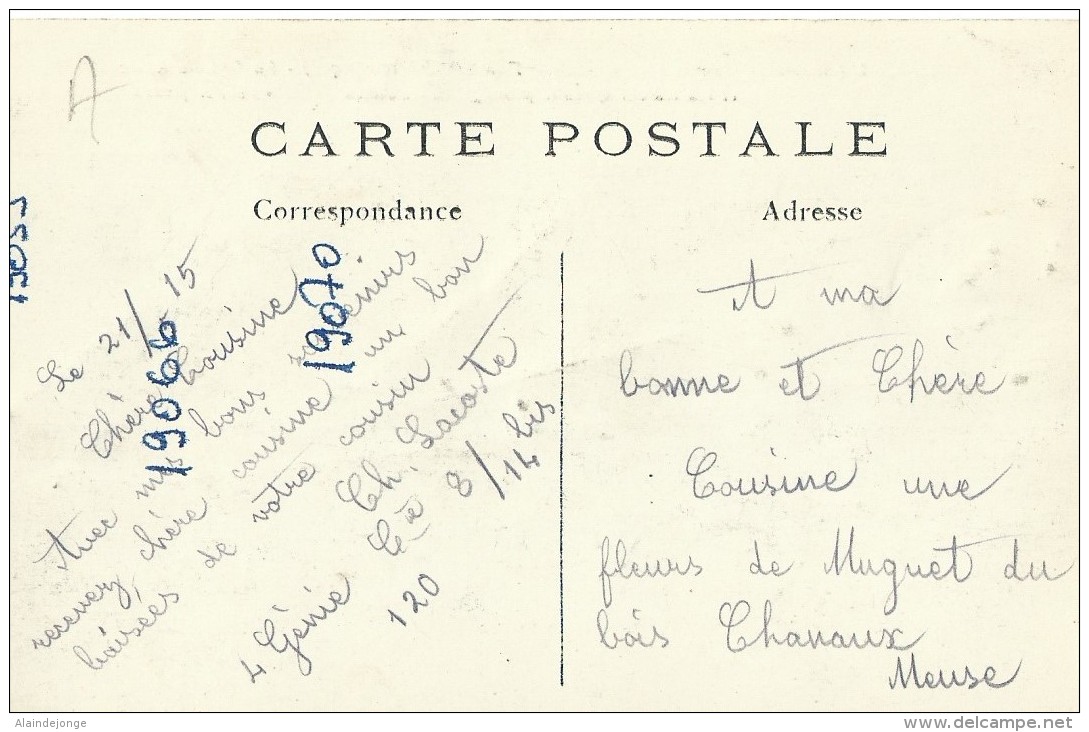 A
CARTE POSTALE
Correspondance
Adresse
Le 21/ 15
Chère Cousine
Avec mes bons souvenirs
recevez chère cousine un bon
baisées de votre cousin
Ch. Lacoste
4 Génie Cie 8/14 bis
120
19066
19070
A ma
bonne et Chère
Cousine une
fleurs de Muguet du
bois Chanaux
Meuse
Alaindejonge
www.delcampe.net